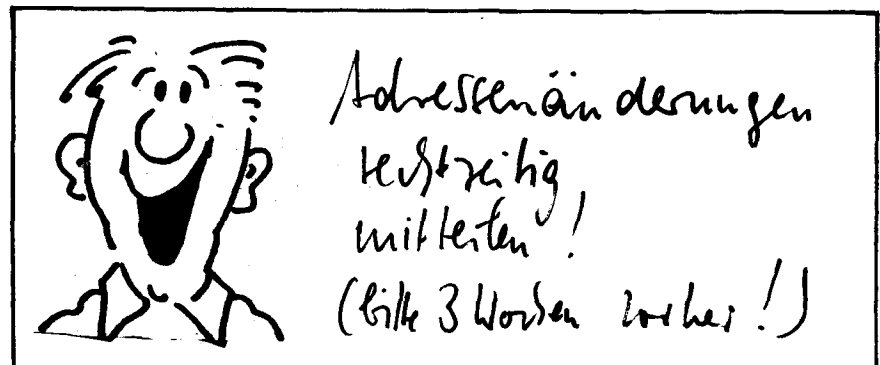 Adressenänderungen
rechtzeitig
mitteilen!
(bitte 3 Wochen vorher!)